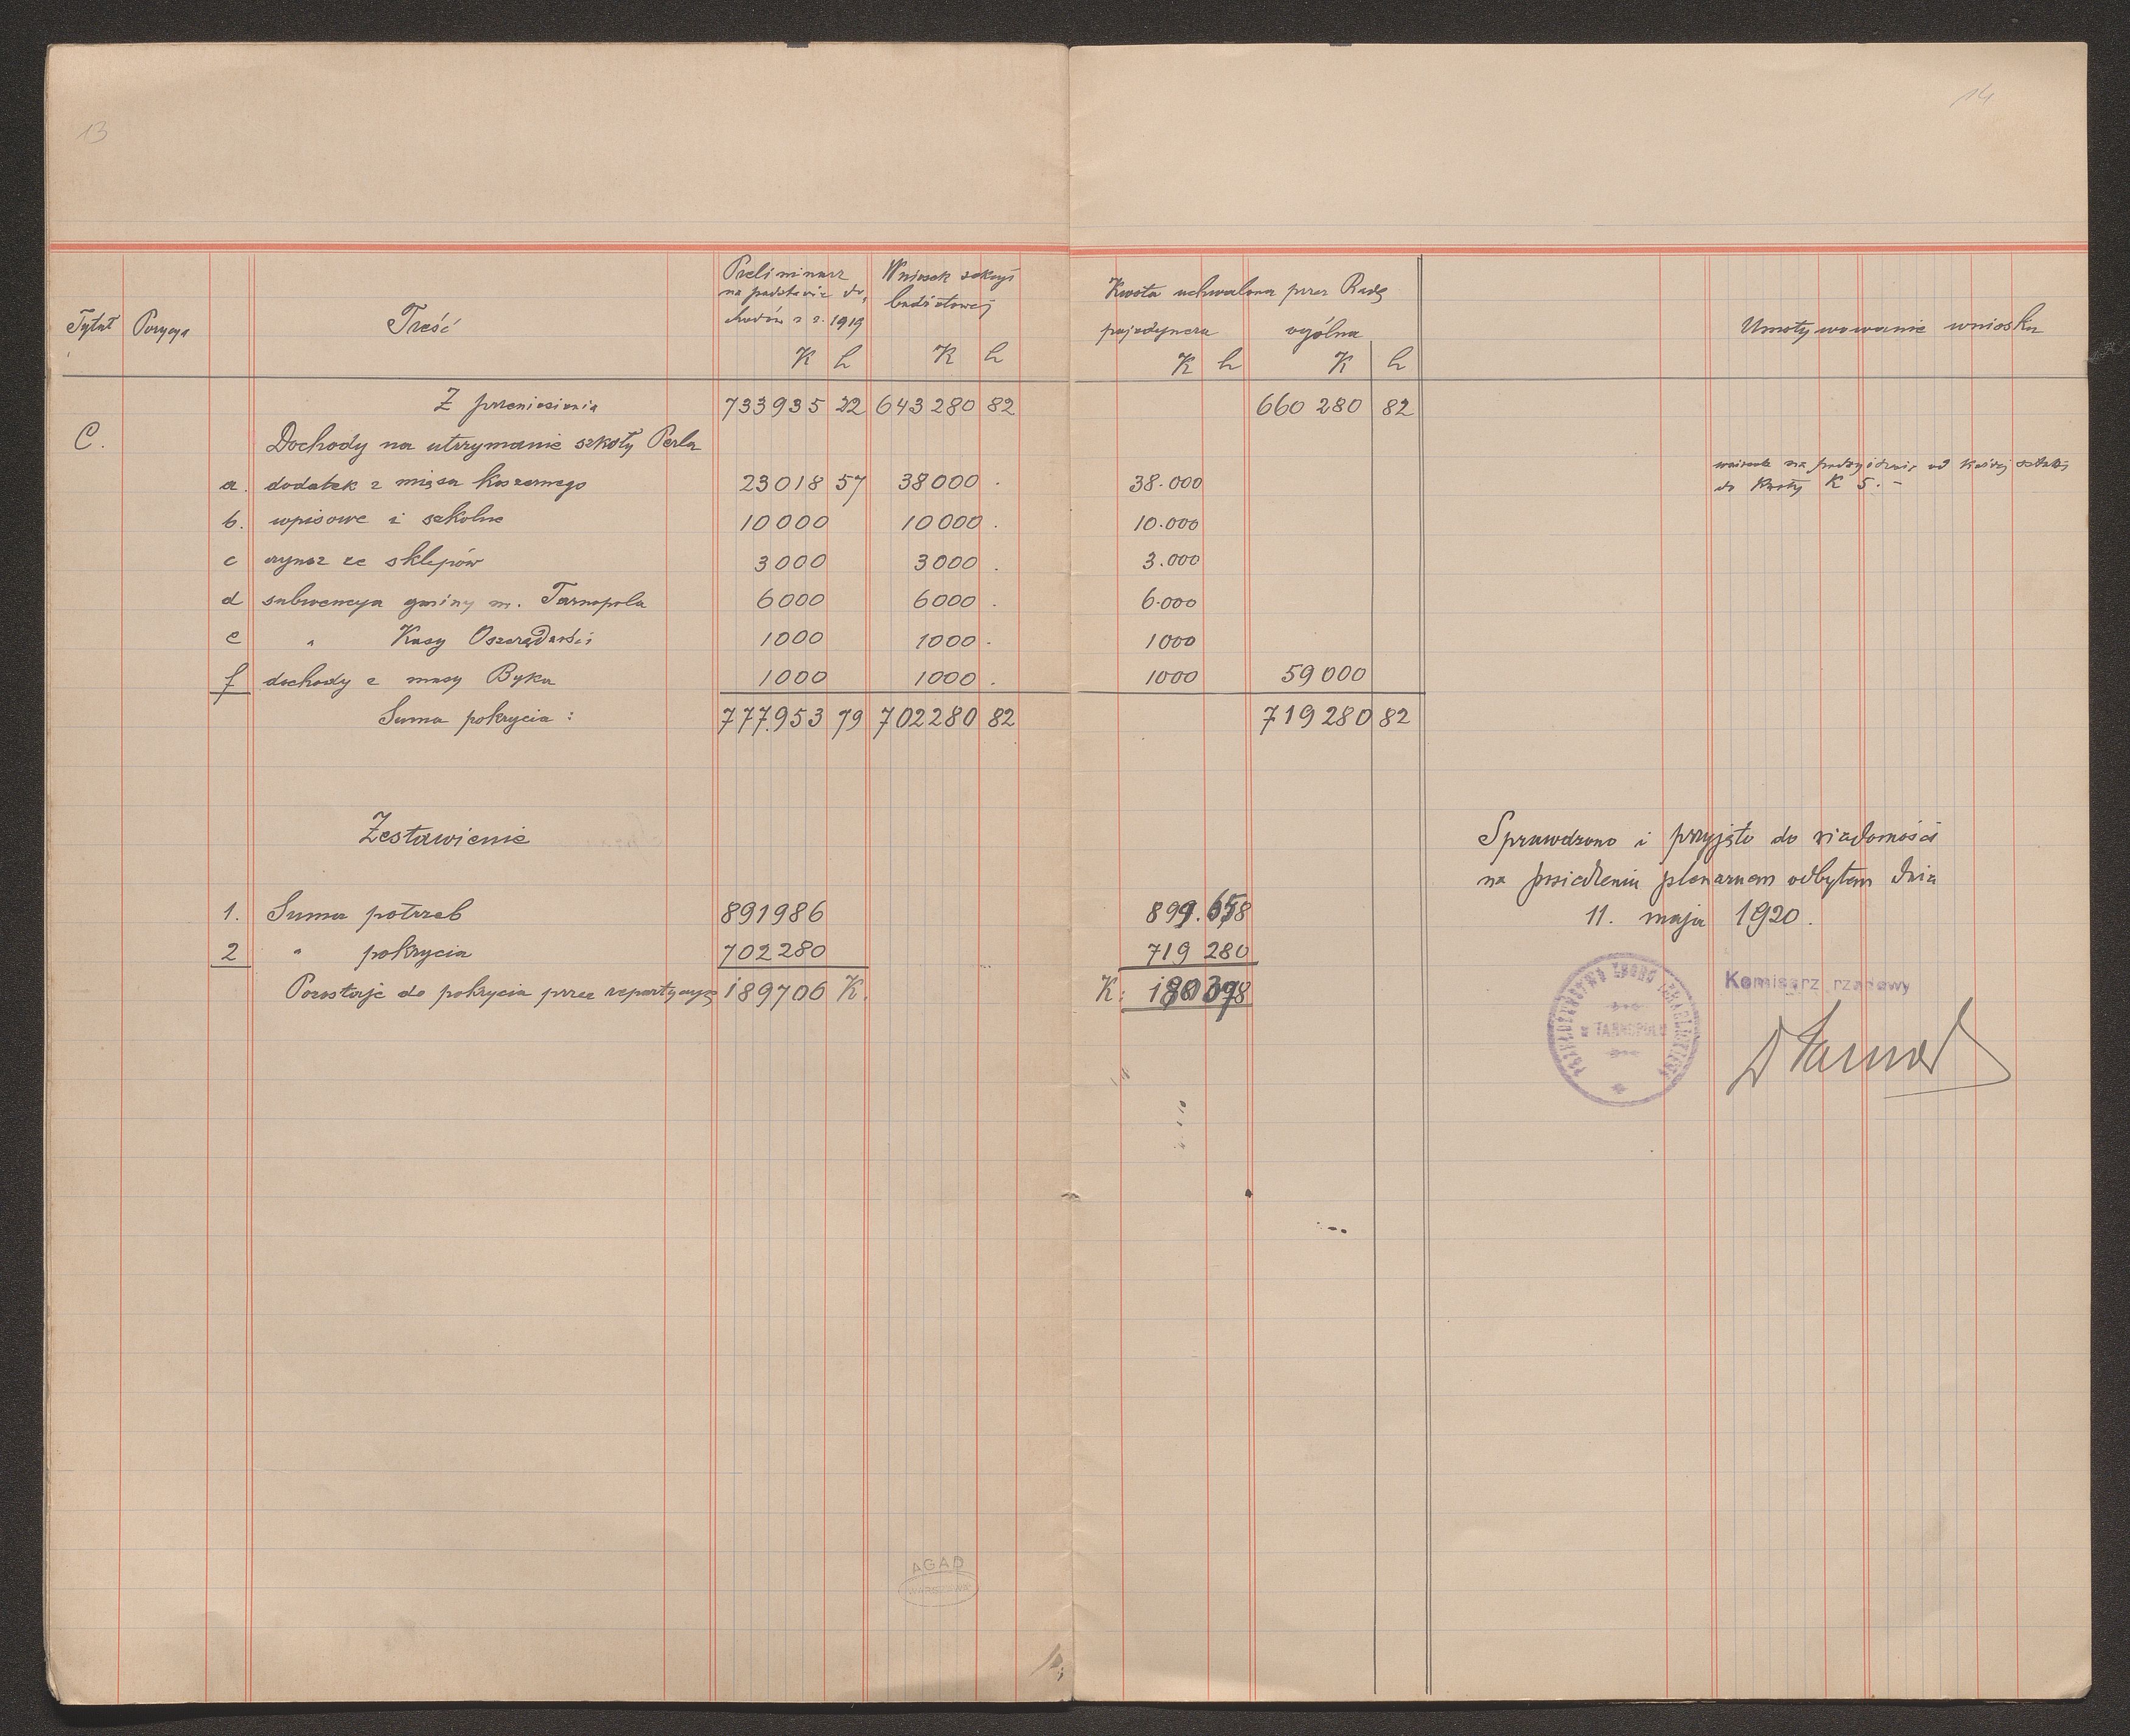 13
14
Tytuł Pozycya Treść Preliminarz na podstawie do- chodów z r. 1919 K h Wniosek sekcyi budżetowej K h Kwota uchwalona przez Radę pojedyncza K h ogólna K h Umotywowanie wniosku
Z przeniesienia 733935 22 643280 82 660 280 82
C. Dochody na utrzymanie szkoły Perla
a. dodatek z mięsa koszernego 23018 57 38000 . 38.000 wniosek na podwyższenie od każdej sztuki
do kwoty K 5.-
b. wpisowe i szkolne 10000 10000 . 10.000
c czynsz ze sklepów 3000 3000 . 3.000
d subwencya gminy m. Tarnopola 6000 6000 . 6.000
e " Kasy Oszczędności 1000 1000 . 1000
f dochody z masy Byka 1000 1000 . 1000 59000
Suma pokrycia : 777.953 79 702280 82 719280 82
Zestawienie
1. Suma potrzeb 891986
2 " pokrycia 702280 719 280
Pozostaje do pokrycia przez repartycyę 189706 K. K:
Sprawdzono i przyjęto do wiadomości
na posiedzeniu plenarnem odbytem dnia
11. maja 1920.
Komisarz rządowy
PRZEŁOŻEŃSTWO ZBORU IZRAELICKIEGO
w TARNOPOLU
AGAD
WARSZAWA